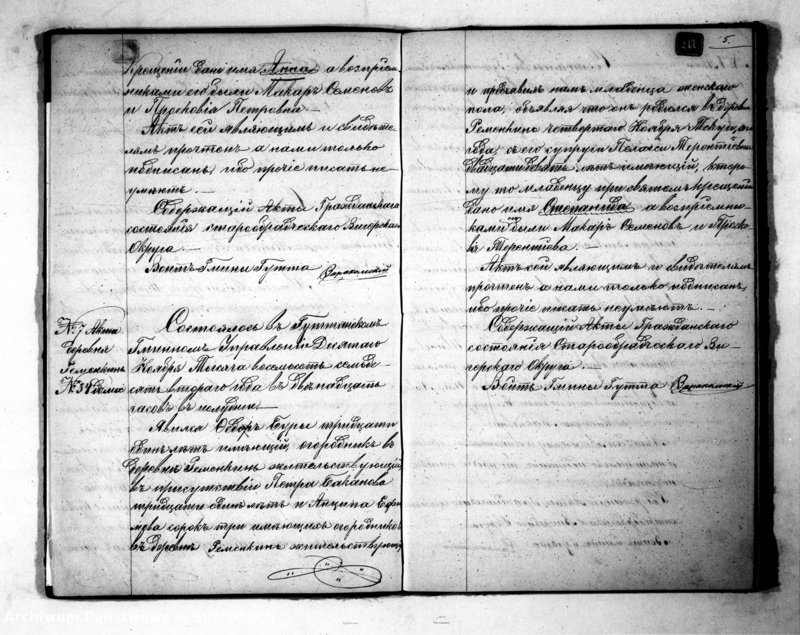 Крещеніи дано имя Анна а воспріем-
никами его были Макаръ Семеновъ
и Просковія Петровна
Актъ сей являющимъ и свидѣте-
лямъ прочтенъ а нами только
подписанъ, ибо прочіе писать не-
умѣютъ. —
Содержащій Акты Гражданскаго
состоянія старообрядческаго Вигерскаго
Округа. —
Войтъ Гмины Гутта
№ 7 Акта
деревня
Ременкинь
№ 34 дома
Состоялось въ Гуттанскомъ
Гминномъ Управленіи Десятаго
Ноября Тысяча восемьсотъ семьде-
сятъ втораго года въ двенадцать
часовъ въ полудни. —
Явился Ѳедоръ тридцати
лѣтъ имѣющій, огородникъ въ
деревнѣ Ременкинь жительствующій,
въ присутствіи Петра Баканова
тридцати лѣтъ и Анципа Ефи-
мова сорокъ три имѣющихъ огородниковъ
въ деревнѣ Ременкинь жительствующихъ
5.
и предъявилъ намъ младенца женскаго
пола, объявляя что онъ родился въ деревнѣ
Ременкинь четвертаго Ноября Текущаго
года, съ его супруги Пелагеи Терентіевны
двадцати лѣтъ имѣющей, которо-
му то младенцу при святомъ крещеніи
дано имя Степанида а воспріемни-
ками были Макаръ Семеновъ и Проско-
Терентіева. —
Актъ сей являющимъ и свидѣтелямъ
прочтенъ а нами только подписанъ,
ибо прочіе писать неумѣютъ. —
Содержащій Акты Гражданскаго
состоянія Старообрядческаго Ви-
герскаго Округа. —
Войтъ Гмины Гутта
Archiwum Państwowe w Suwałkach